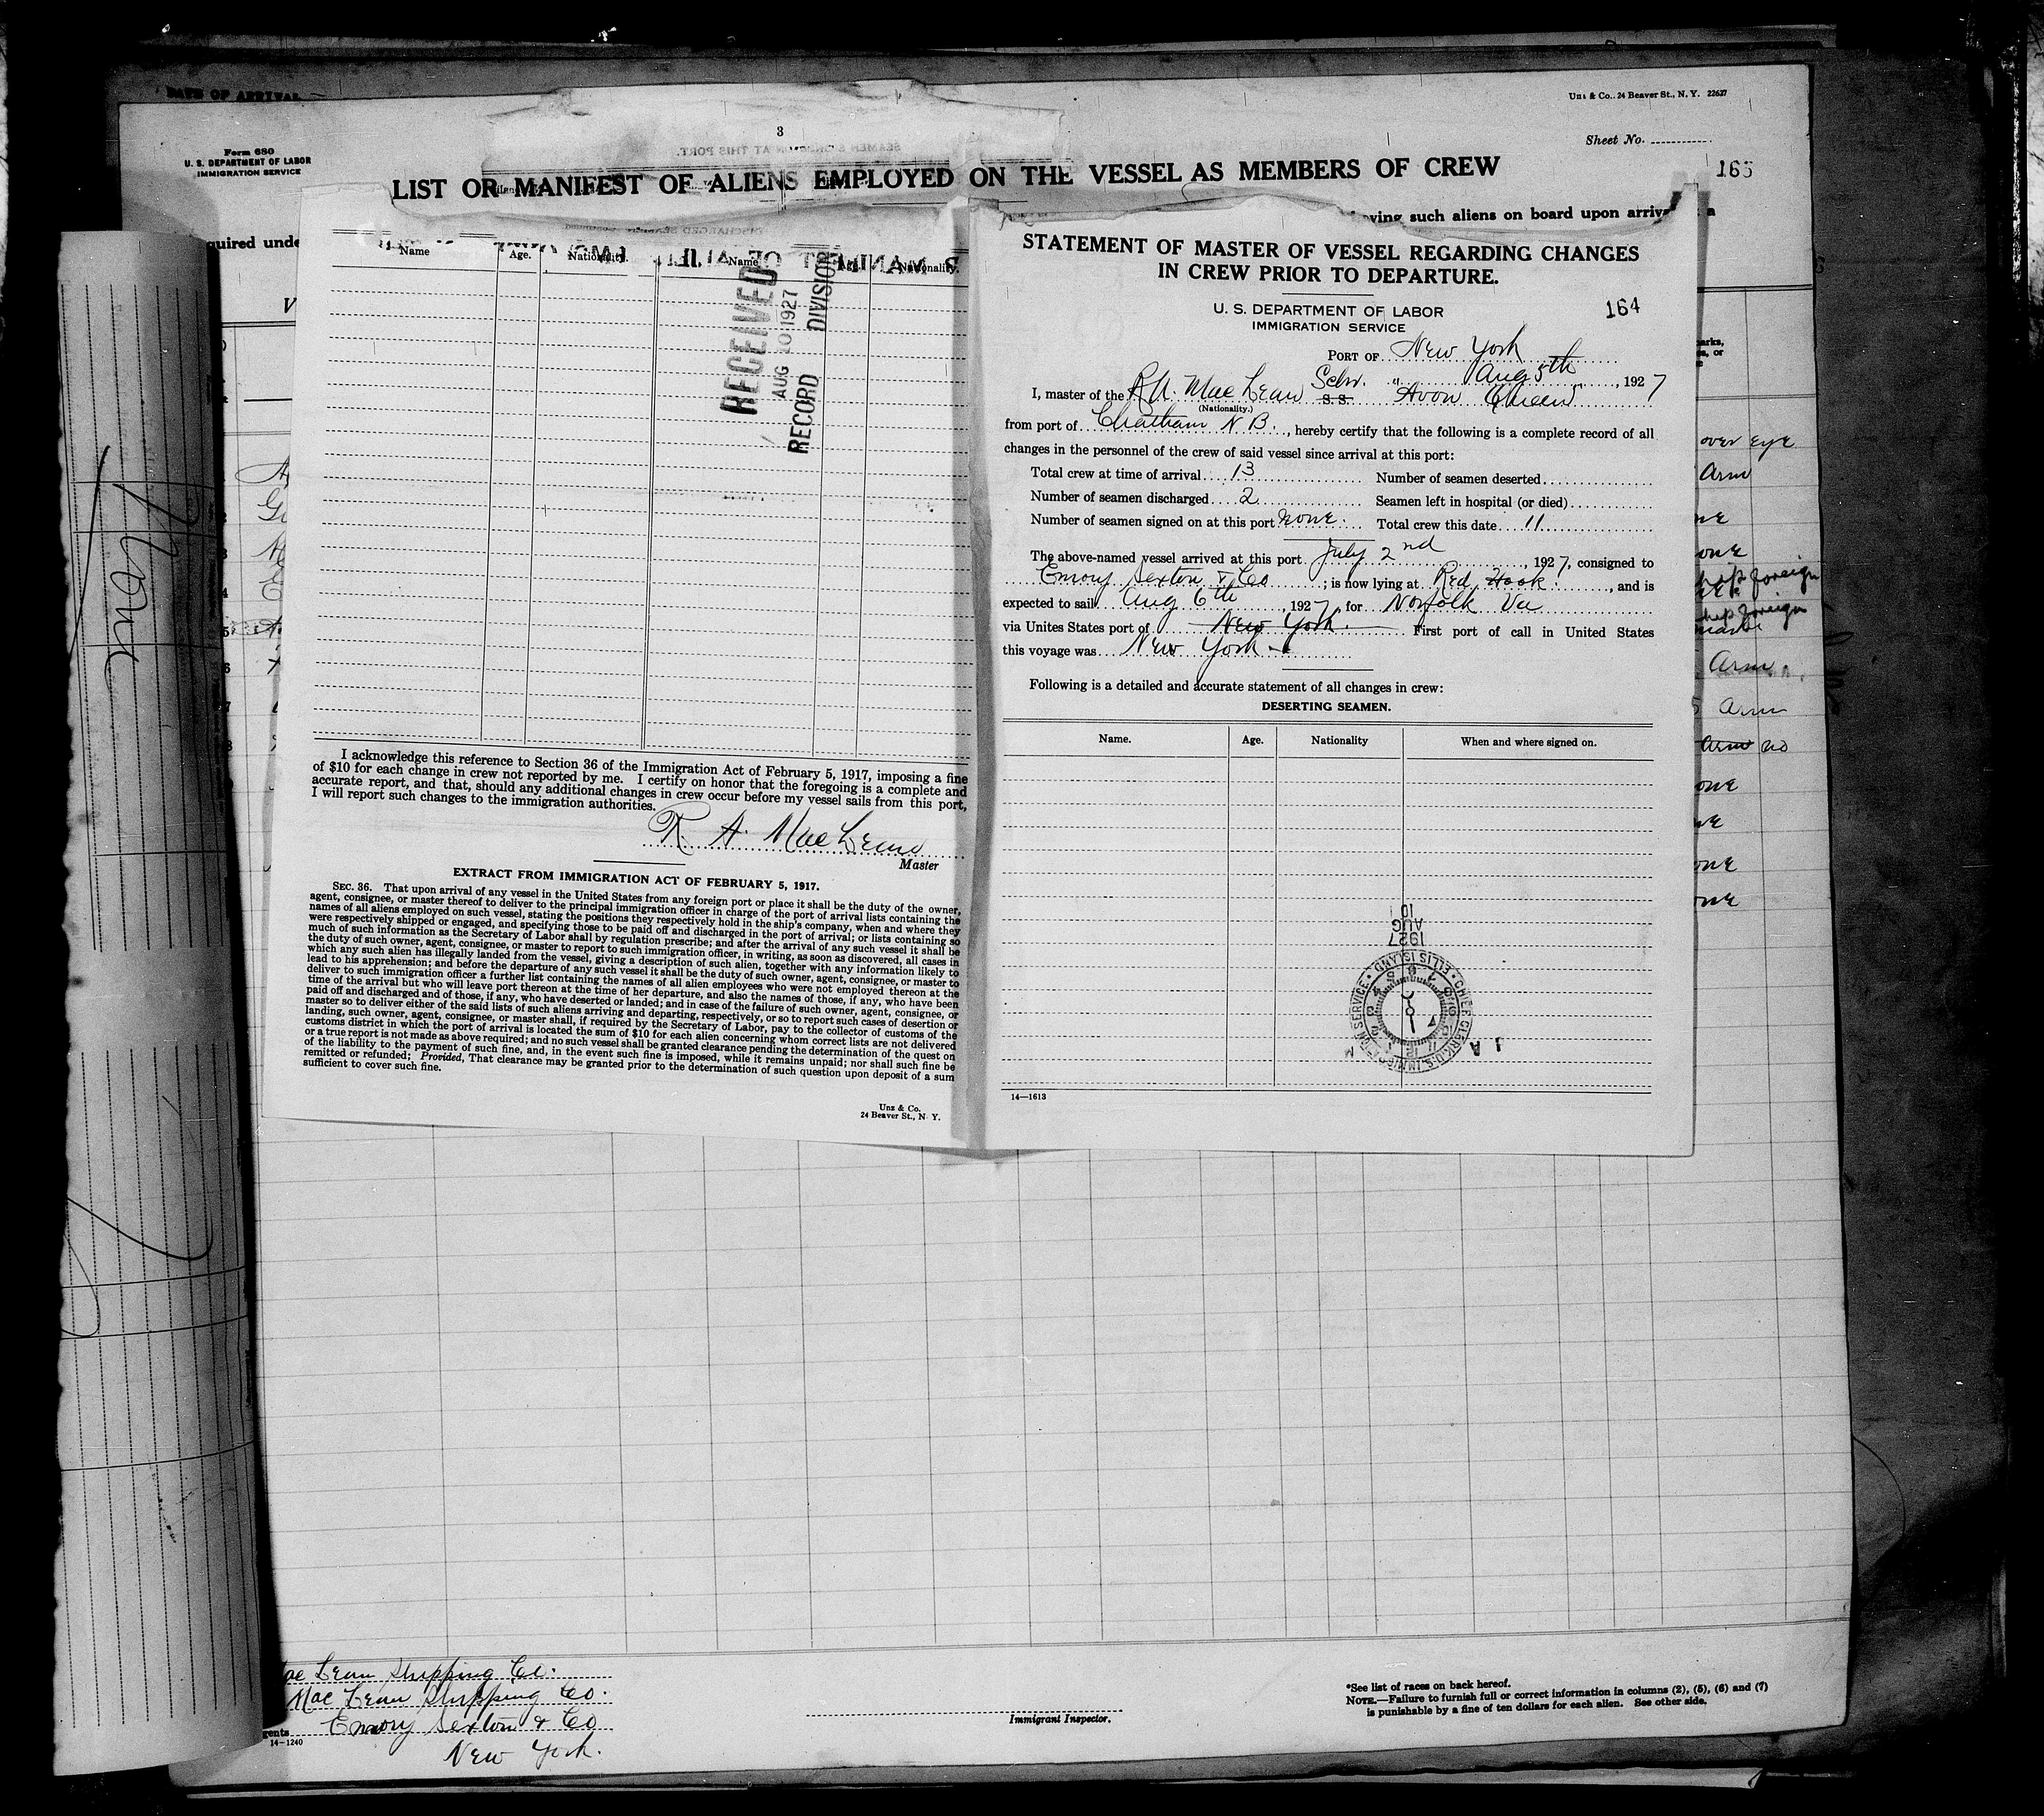 DATE OF ARRIVAL
Unz & Co., 24 Beaver St., N. Y. 22627
Form 680
U. S. DEPARTMENT OF LABOR
IMMIGRATION SERVICE
3
Sheet No.
LIST OR MANIFEST OF ALIENS EMPLOYED ON THE VESSEL AS MEMBERS OF CREW
165
such aliens on board upon
None
Name Age. Nationality. Name Nationality.
RECEIVED
AUG 10 1927
RECORD DIVISION
I acknowledge this reference to Section 36 of the Immigration Act of February 5, 1917, imposing a fine
of $10 for each change in crew not reported by me. I certify on honor that the foregoing is a complete and
accurate report, and that, should any additional changes in crew occur before my vessel sails from this port,
I will report such changes to the immigration authorities.
R. A. MacLean
Master
EXTRACT FROM IMMIGRATION ACT OF FEBRUARY 5, 1917.
SEC. 36. That upon arrival of any vessel in the United States from any foreign port or place it shall be the duty of the owner,
agent, consignee, or master thereof to deliver to the principal immigration officer in charge of the port of arrival lists containing the
names of all aliens employed on such vessel, stating the positions they respectively hold in the ship's company, when and where they
were respectively shipped or engaged, and specifying those to be paid off and discharged in the port of arrival; or lists containing so
much of such information as the Secretary of Labor shall by regulation prescribe; and after the arrival of any such vessel it shall be
the duty of such owner, agent, consignee, or master to report to such immigration officer, in writing, as soon as discovered, all cases in
which any such alien has illegally landed from the vessel, giving a description of such alien, together with any information likely to
lead to his apprehension; and before the departure of any such vessel it shall be the duty of such owner, agent, consignee, or master to
deliver to such immigration officer a further list containing the names of all alien employees who were not employed thereon at the
time of the arrival but who will leave port thereon at the time of her departure, and also the names of those, if any, who have been
paid off and discharged and of those, if any, who have deserted or landed; and in case of the failure of such owner, agent, consignee, or
master so to deliver either of the said lists of such aliens arriving and departing, respectively, or so to report such cases of desertion or
landing, such owner, agent, consignee, or master shall, if required by the Secretary of Labor, pay to the collector of customs of the
customs district in which the port of arrival is located the sum of $10 for each alien concerning whom correct lists are not delivered
or a true report is not made as above required; and no such vessel shall be granted clearance pending the determination of the quest on
of the liability to the payment of such fine, and, in the event such fine is imposed, while it remains unpaid; nor shall such fine be
remitted or refunded; Provided, That clearance may be granted prior to the determination of such question upon deposit of a sum
sufficient to cover such fine.
Unz & Co.
24 Beaver St., N. Y.
STATEMENT OF MASTER OF VESSEL REGARDING CHANGES
IN CREW PRIOR TO DEPARTURE.
U. S. DEPARTMENT OF LABOR
IMMIGRATION SERVICE
164
PORT OF New York
Aug 5th, 1927
I, master of the R A. MacLean Schr. S.S. " Avon Queen
(Nationality.)
from port of Chatham N B., hereby certify that the following is a complete record of all
changes in the personnel of the crew of said vessel since arrival at this port:
Total crew at time of arrival 13 Number of seamen deserted
Number of seamen discharged 2 Seamen left in hospital (or died)
Number of seamen signed on at this port none. Total crew this date 11
The above-named vessel arrived at this port July 2nd, 1927, consigned to
Emory Sexton & Co; is now lying at Red Hook, and is
expected to sail Aug 6th, 1927, for Norfolk Va
via Unites States port of New York. First port of call in United States
this voyage was New York
Following is a detailed and accurate statement of all changes in crew:
DESERTING SEAMEN.
Name. Age. Nationality When and where signed on.
1927 AUG 10
CHIEF CLERK U.S. IMMIGRATION SERVICE ELLIS ISLAND
14—1613
over eye
Arm
one
foreign
foreign
Arm
Arm
Arm no
one
one
Lean Shipping Co.
MacLean Shipping Co.
Emory Sexton & Co
New York.
14-1240
Immigrant Inspector.
*See list of races on back hereof.
NOTE.—Failure to furnish full or correct information in columns (2), (5), (6) and (7)
is punishable by a fine of ten dollars for each alien. See other side.